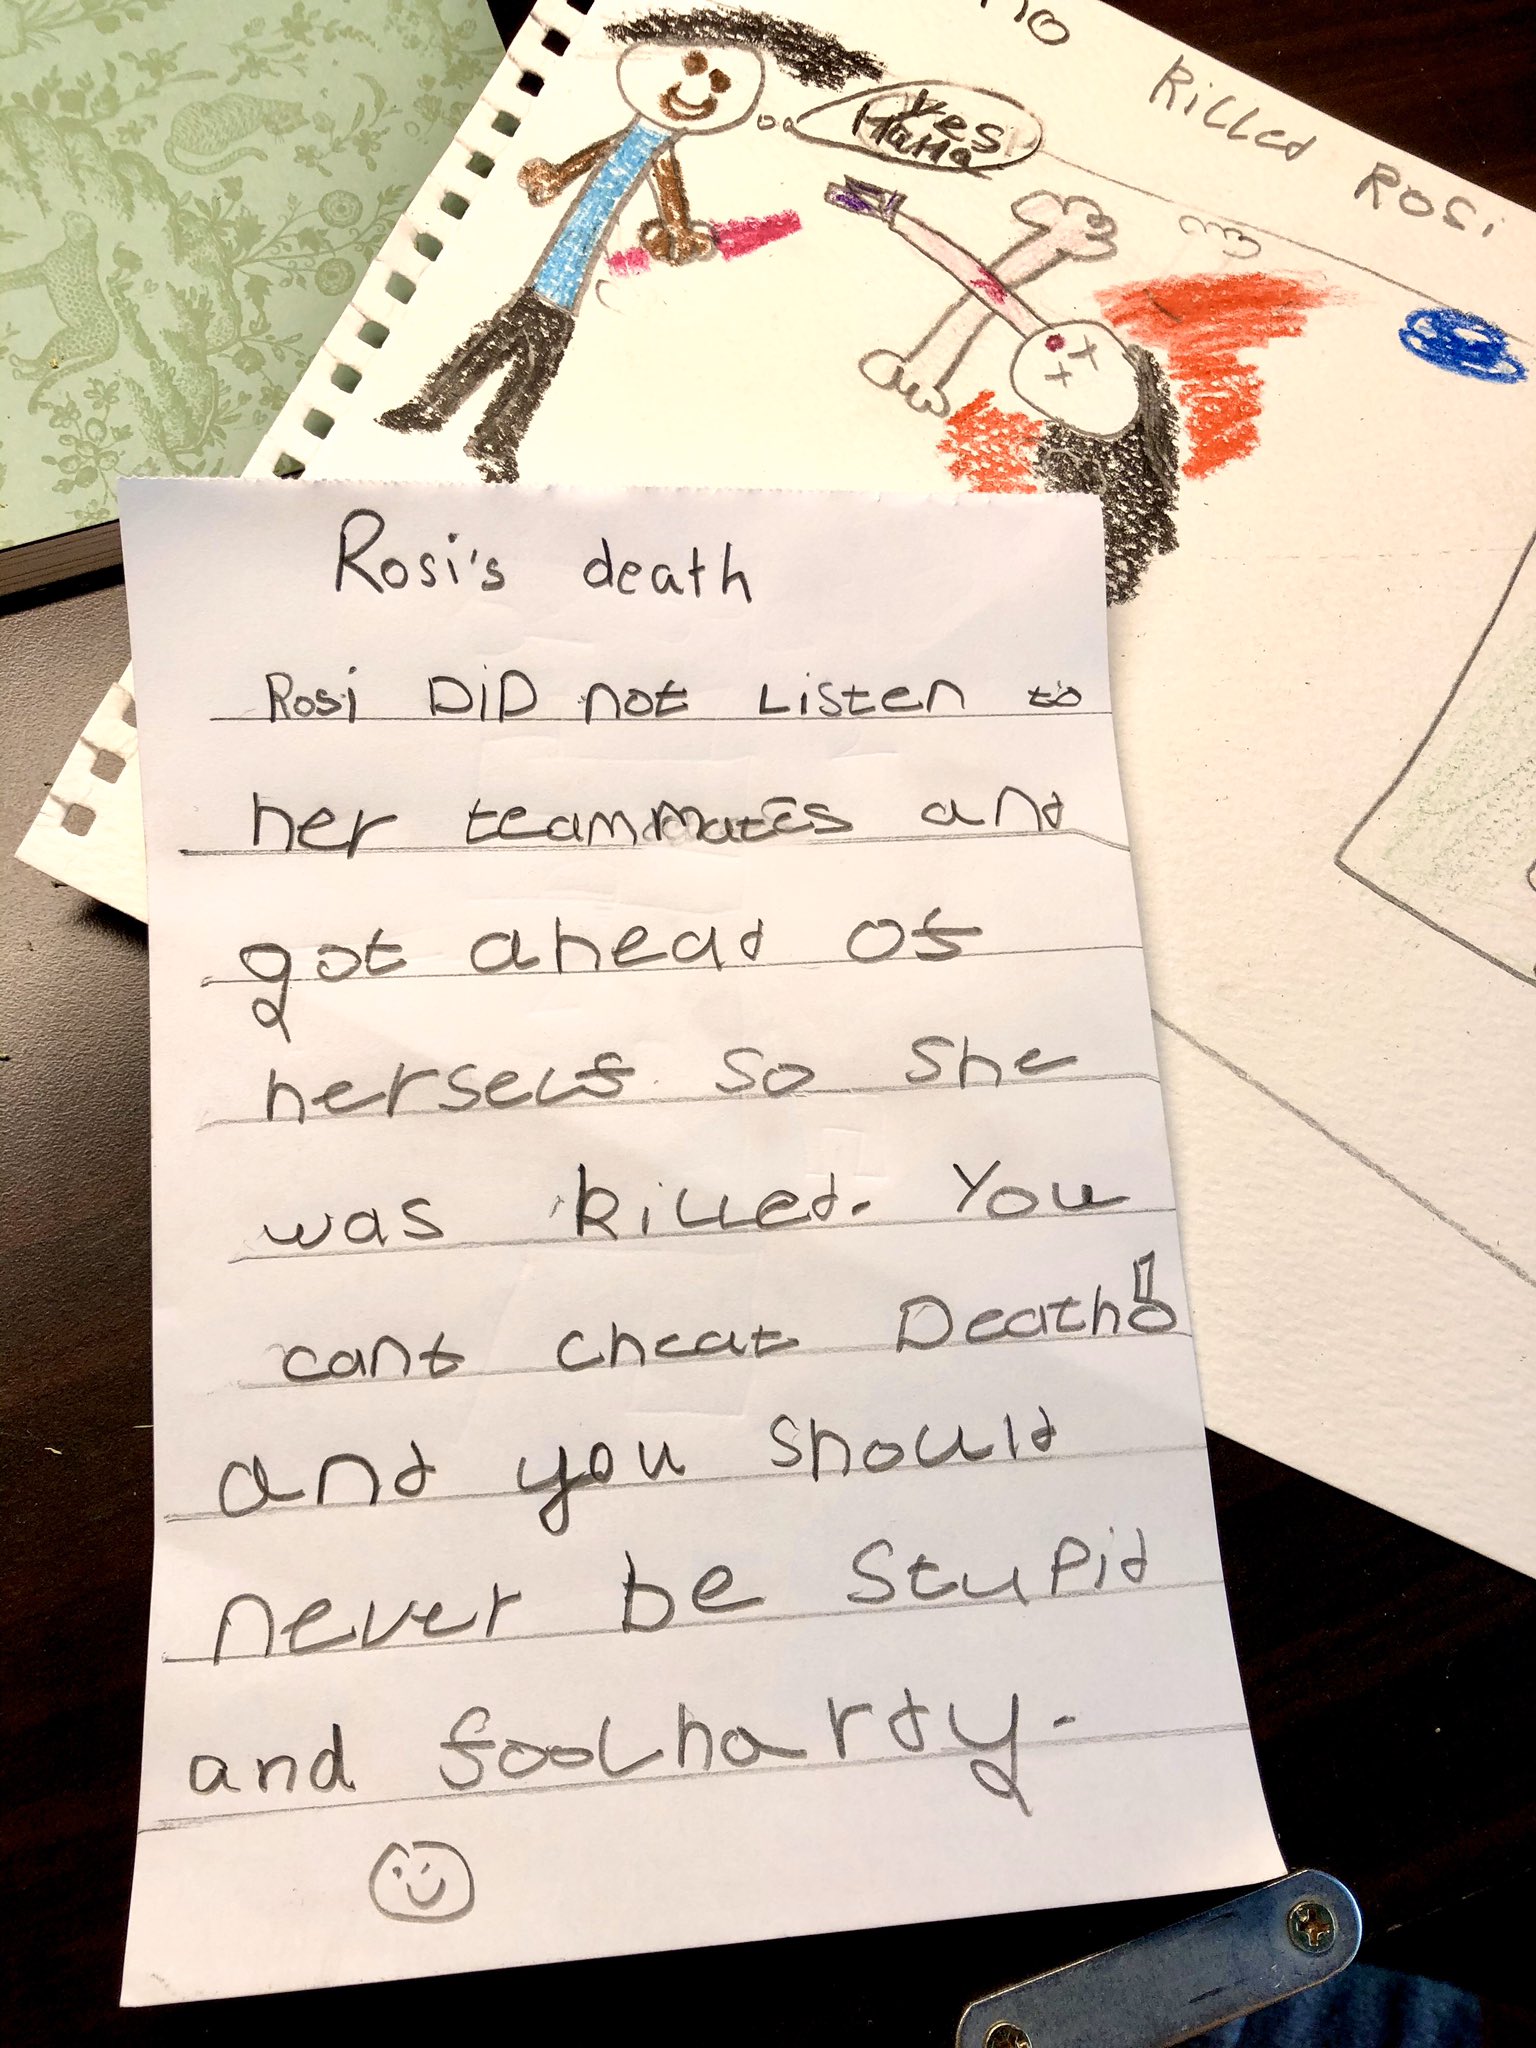 Killed Rosi
Yes
HaHa
Rosi's death
Rosi DiD not Listen to
her teammates and
got ahead of
herself. so she
was killed. You
cant cheat Death!
and you should
never be stupid
and foolhardy.